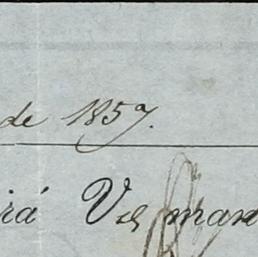 de 1857.
irá Vd man